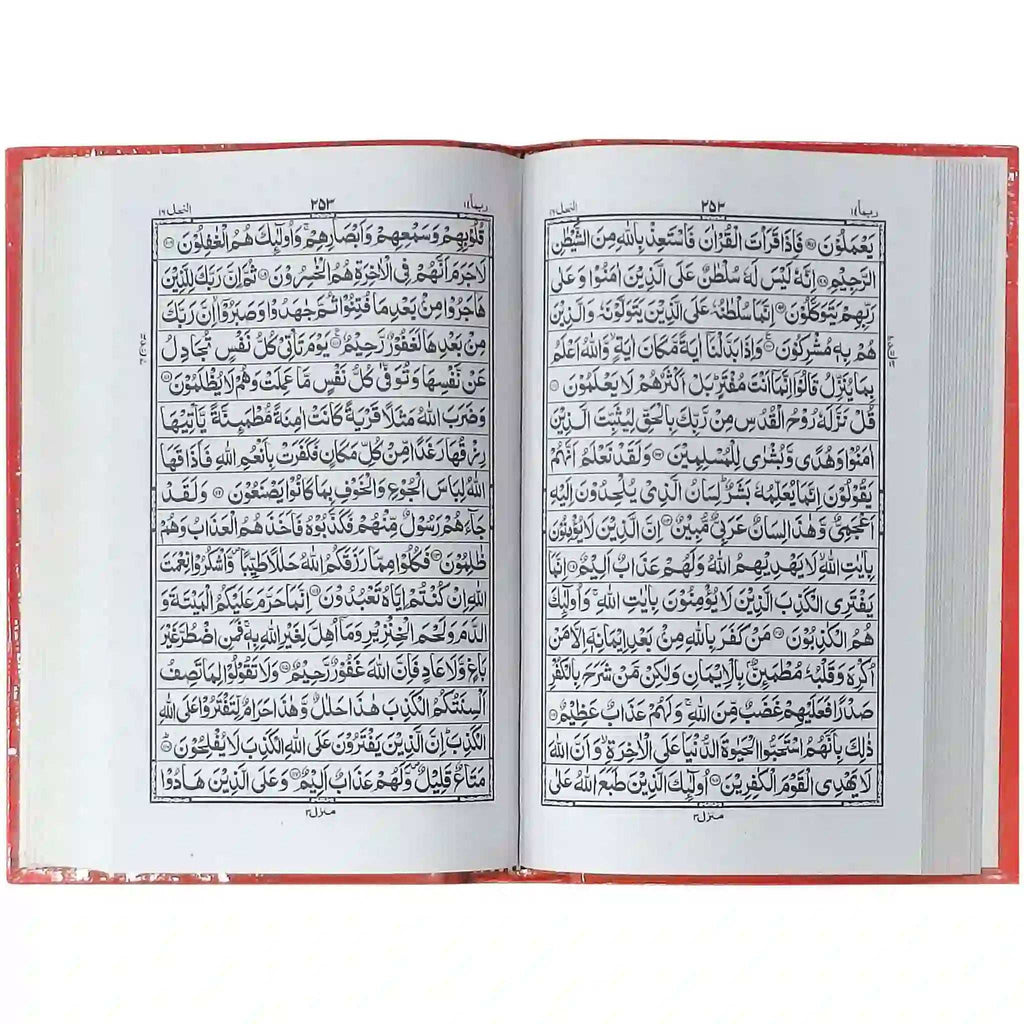 النحل ١٦
٢٥٣
ربما ١٤
يَعْمَلُوْنَ ﴿٩٧﴾ فَاِذَا قَرَاْتَ الْقُرْاٰنَ فَاسْتَعِذْ بِاللّٰهِ مِنَ الشَّيْطٰنِ
الرَّجِيْمِ ﴿٩٨﴾ اِنَّهٗ لَيْسَ لَهٗ سُلْطٰنٌ عَلَى الَّذِيْنَ اٰمَنُوْا وَعَلٰى
رَبِّهِمْ يَتَوَكَّلُوْنَ ﴿٩٩﴾ اِنَّمَا سُلْطٰنُهٗ عَلَى الَّذِيْنَ يَتَوَلَّوْنَهٗ وَالَّذِيْنَ
هُمْ بِهٖ مُشْرِكُوْنَ ﴿١٠٠﴾ وَاِذَا بَدَّلْنَآ اٰيَةً مَّكَانَ اٰيَةٍ وَّاللّٰهُ اَعْلَمُ
بِمَا يُنَزِّلُ قَالُوْٓا اِنَّمَآ اَنْتَ مُفْتَرٍ بَلْ اَكْثَرُهُمْ لَا يَعْلَمُوْنَ ﴿١٠١﴾
قُلْ نَزَّلَهٗ رُوْحُ الْقُدُسِ مِنْ رَّبِّكَ بِالْحَقِّ لِيُثَبِّتَ الَّذِيْنَ
اٰمَنُوْا وَهُدًى وَّبُشْرٰى لِلْمُسْلِمِيْنَ ﴿١٠٢﴾ وَلَقَدْ نَعْلَمُ اَنَّهُمْ
يَقُوْلُوْنَ اِنَّمَا يُعَلِّمُهٗ بَشَرٌ لِسَانُ الَّذِيْ يُلْحِدُوْنَ اِلَيْهِ
اَعْجَمِيٌّ وَّهٰذَا لِسَانٌ عَرَبِيٌّ مُّبِيْنٌ ﴿١٠٣﴾ اِنَّ الَّذِيْنَ لَا يُؤْمِنُوْنَ
بِاٰيٰتِ اللّٰهِ لَا يَهْدِيْهِمُ اللّٰهُ وَلَهُمْ عَذَابٌ اَلِيْمٌ ﴿١٠٤﴾ اِنَّمَا
يَفْتَرِى الْكَذِبَ الَّذِيْنَ لَا يُؤْمِنُوْنَ بِاٰيٰتِ اللّٰهِ وَاُولٰٓئِكَ
هُمُ الْكٰذِبُوْنَ ﴿١٠٥﴾ مَنْ كَفَرَ بِاللّٰهِ مِنْ بَعْدِ اِيْمَانِهٖٓ اِلَّا مَنْ
اُكْرِهَ وَقَلْبُهٗ مُطْمَئِنٌّ بِالْاِيْمَانِ وَلٰكِنْ مَّنْ شَرَحَ بِالْكُفْرِ
صَدْرًا فَعَلَيْهِمْ غَضَبٌ مِّنَ اللّٰهِ وَلَهُمْ عَذَابٌ عَظِيْمٌ ﴿١٠٦﴾
ذٰلِكَ بِاَنَّهُمُ اسْتَحَبُّوا الْحَيٰوةَ الدُّنْيَا عَلَى الْاٰخِرَةِ وَاَنَّ اللّٰهَ
لَا يَهْدِى الْقَوْمَ الْكٰفِرِيْنَ ﴿١٠٧﴾ اُولٰٓئِكَ الَّذِيْنَ طَبَعَ اللّٰهُ عَلٰى
منزل ٣
النحل ١٦
٢٥٣
ربما ١٤
قُلُوْبِهِمْ وَسَمْعِهِمْ وَاَبْصَارِهِمْ وَاُولٰٓئِكَ هُمُ الْغٰفِلُوْنَ ﴿١٠٨﴾
لَا جَرَمَ اَنَّهُمْ فِى الْاٰخِرَةِ هُمُ الْخٰسِرُوْنَ ﴿١٠٩﴾ ثُمَّ اِنَّ رَبَّكَ لِلَّذِيْنَ
هَاجَرُوْا مِنْ بَعْدِ مَا فُتِنُوْا ثُمَّ جٰهَدُوْا وَصَبَرُوْٓا اِنَّ رَبَّكَ
مِنْ بَعْدِهَا لَغَفُوْرٌ رَّحِيْمٌ ﴿١١٠﴾ يَوْمَ تَاْتِيْ كُلُّ نَفْسٍ تُجَادِلُ
عَنْ نَّفْسِهَا وَتُوَفّٰى كُلُّ نَفْسٍ مَّا عَمِلَتْ وَهُمْ لَا يُظْلَمُوْنَ ﴿١١١﴾
وَضَرَبَ اللّٰهُ مَثَلًا قَرْيَةً كَانَتْ اٰمِنَةً مُّطْمَئِنَّةً يَّاْتِيْهَا
رِزْقُهَا رَغَدًا مِّنْ كُلِّ مَكَانٍ فَكَفَرَتْ بِاَنْعُمِ اللّٰهِ فَاَذَاقَهَا
اللّٰهُ لِبَاسَ الْجُوْعِ وَالْخَوْفِ بِمَا كَانُوْا يَصْنَعُوْنَ ﴿١١٢﴾ وَلَقَدْ
جَآءَهُمْ رَسُوْلٌ مِّنْهُمْ فَكَذَّبُوْهُ فَاَخَذَهُمُ الْعَذَابُ وَهُمْ
ظٰلِمُوْنَ ﴿١١٣﴾ فَكُلُوْا مِمَّا رَزَقَكُمُ اللّٰهُ حَلٰلًا طَيِّبًا وَّاشْكُرُوْا نِعْمَتَ
اللّٰهِ اِنْ كُنْتُمْ اِيَّاهُ تَعْبُدُوْنَ ﴿١١٤﴾ اِنَّمَا حَرَّمَ عَلَيْكُمُ الْمَيْتَةَ وَ
الدَّمَ وَلَحْمَ الْخِنْزِيْرِ وَمَآ اُهِلَّ لِغَيْرِ اللّٰهِ بِهٖ فَمَنِ اضْطُرَّ غَيْرَ
بَاغٍ وَّلَا عَادٍ فَاِنَّ اللّٰهَ غَفُوْرٌ رَّحِيْمٌ ﴿١١٥﴾ وَلَا تَقُوْلُوْا لِمَا تَصِفُ
اَلْسِنَتُكُمُ الْكَذِبَ هٰذَا حَلٰلٌ وَّهٰذَا حَرَامٌ لِّتَفْتَرُوْا عَلَى اللّٰهِ
الْكَذِبَ اِنَّ الَّذِيْنَ يَفْتَرُوْنَ عَلَى اللّٰهِ الْكَذِبَ لَا يُفْلِحُوْنَ ﴿١١٦﴾
مَتَاعٌ قَلِيْلٌ وَّلَهُمْ عَذَابٌ اَلِيْمٌ ﴿١١٧﴾ وَعَلَى الَّذِيْنَ هَادُوْا
منزل ٣